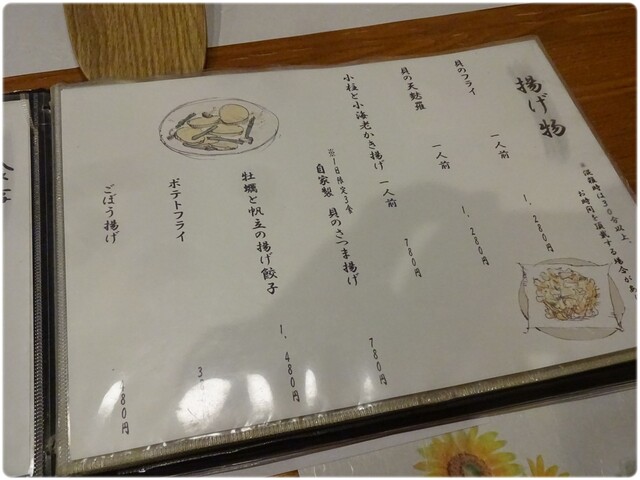 揚げ物
※混雑時は30分以上
お時間を頂戴する場合があ
貝のフライ 一人前 1,280円
貝の天麩羅 一人前 1,280円
小柱と小海老かき揚げ 一人前 780円
自家製 貝のさつま揚げ 780円
※1日限定3食
牡蠣と帆立の揚げ餃子 1,480円
ポテトフライ 3
ごぼう揚げ 80円